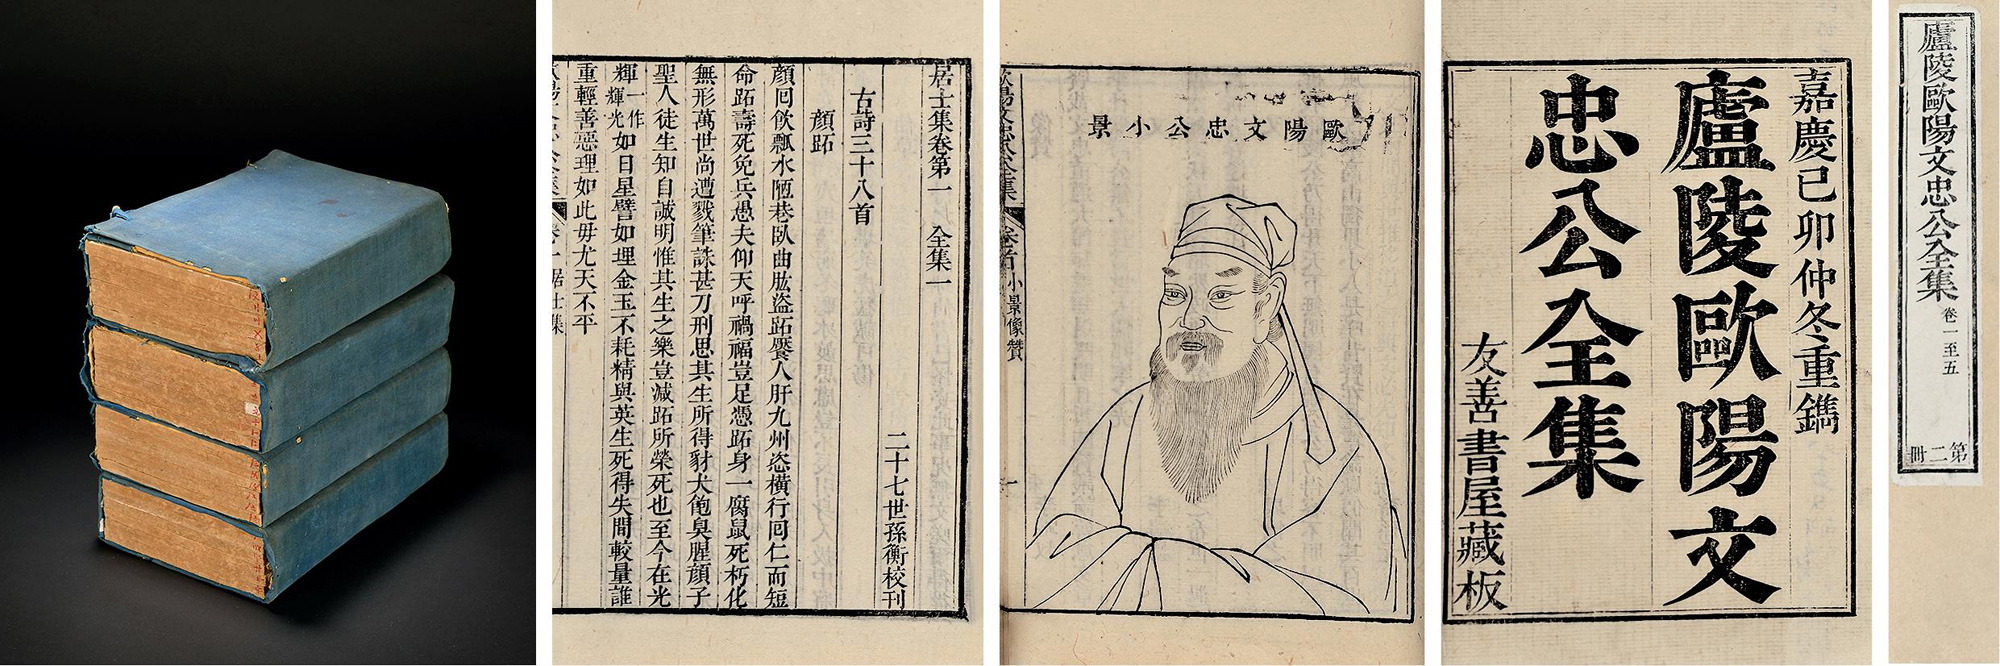 居士集卷第一 全集一
二十七世孫衡校刊
古詩三十八首
顏跖
顏囘飲瓢水陋巷臥曲肱盜跖饜人肝九州恣橫行囘仁而短
命跖壽死免兵愚夫仰天呼禍福豈足憑跖身一腐鼠死朽化
無形萬世尚遭戮筆誅甚刀刑思其生所得豺犬飽臭腥顏子
聖人徒生知自誠明惟其生之樂豈減跖所榮死也至今在光
輝一作輝光如日星譬如埋金玉不耗精與英生死得失間較量誰
重輕善惡理如此毋尤天不平
歐陽文忠公小景
卷首 小景像贊
嘉慶己卯仲冬重鐫
廬陵歐陽文
忠公全集
友善書屋藏板
廬陵歐陽文忠公全集 卷一至五
第二冊